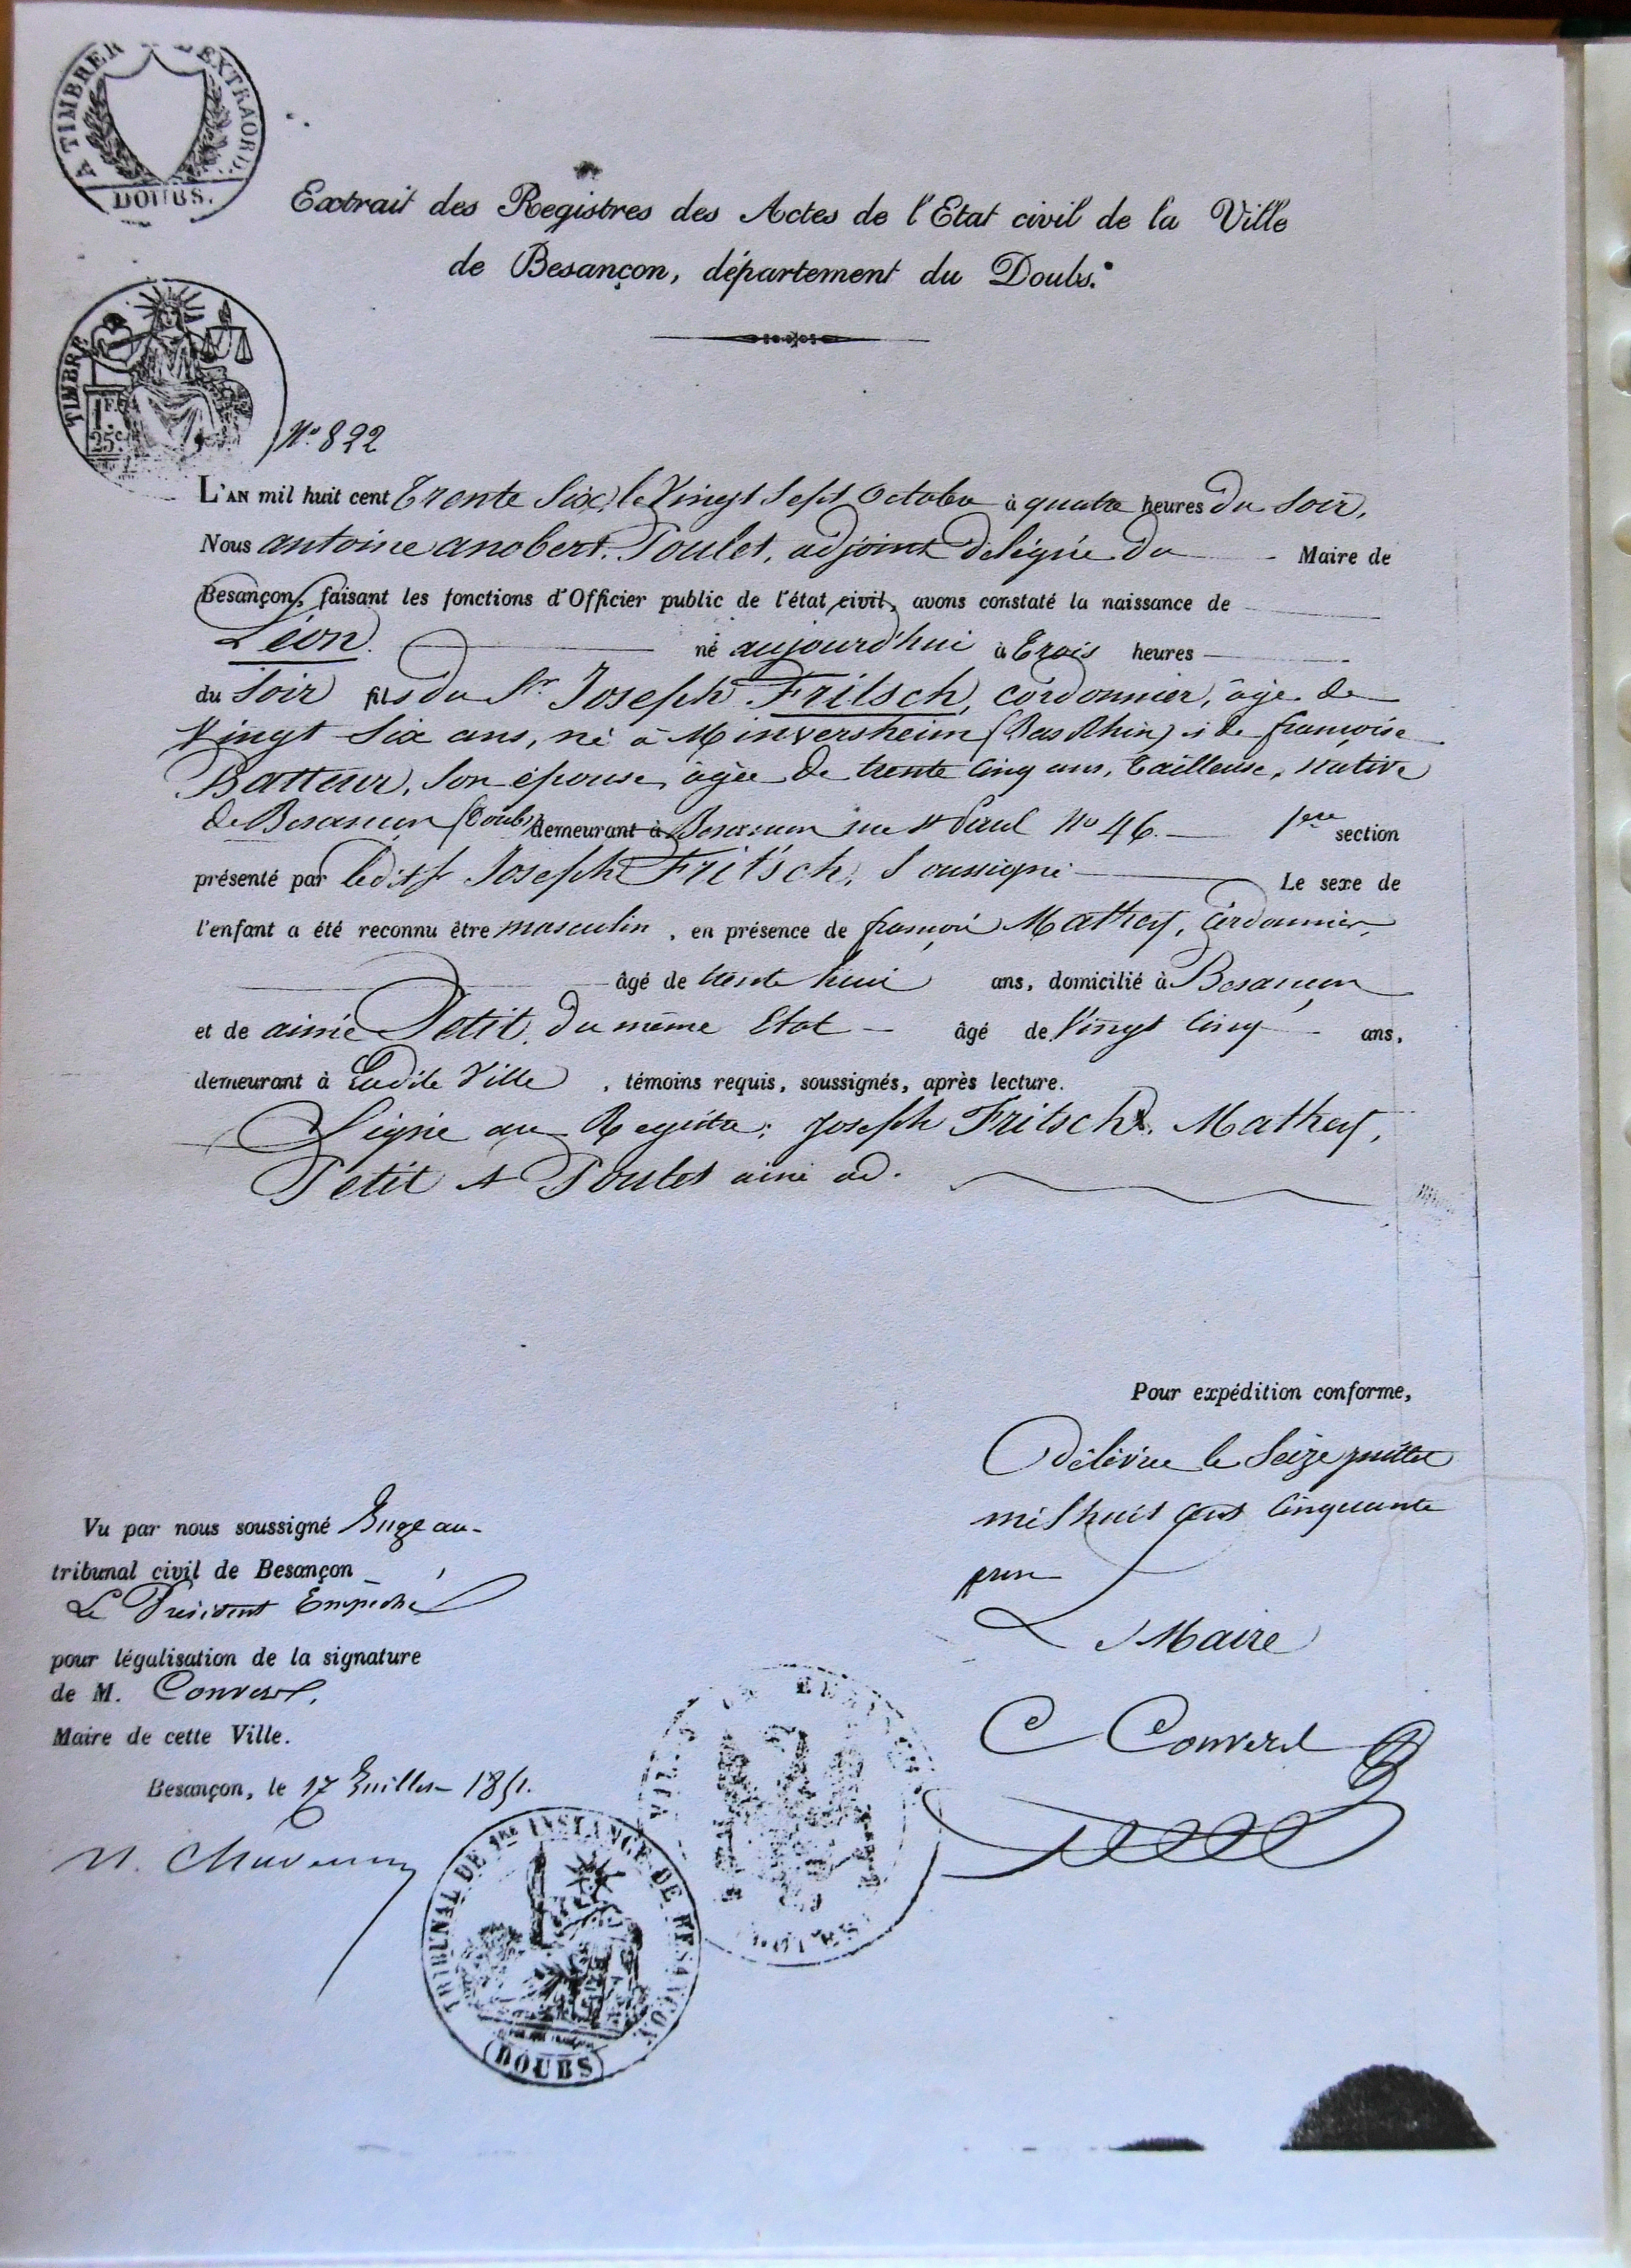 A TIMBRER EXTRAORD.
DOUBS.
Extrait des Registres des Actes de l'Etat civil de la Ville
de Besançon, département du Doubs.
TIMBRE
1F.
25c.
No. 822
L'AN mil huit cent Trente Six, le Vingt Sept Octobre à quatre heures du Soir,
Nous antoine anobert Poulet, adjoint délégué du Maire de
Besançon, faisant les fonctions d'Officier public de l'état civil, avons constaté la naissance de
Léon né aujourd'hui à Trois heures
du Soir fils du Sr. Joseph Fritsch, cordonnier, âgé de
Vingt Six ans, né à Minversheim (Bas Rhin) & de françoise
Batteur, Son épouse, âgée de trente Cinq ans, Tailleuse, native
de Besançon (Doubs) demeurant à Besançon rue St Paul No 46. 1ere section
présenté par ledit Sr Joseph Fritsch, Soussigné Le sexe de
l'enfant a été reconnu être masculin, en présence de françois Mathey, Cordonnier,
âgé de trente huit ans, domicilié à Besançon
et de aimé Petit, du même Etat âgé de Vingt Cinq ans,
demeurant à Ladite Ville, témoins requis, soussignés, après lecture.
Signé au Registre: Joseph Fritsch. Mathey,
Petit & Poulet ainé ad.
Pour expédition conforme,
Délivré le Seize juillet
mil huit cent Cinquante
un
Le Maire
C Convers
Vu par nous soussigné Juge au
tribunal civil de Besançon
Le Président Empêché
pour légalisation de la signature
de M. Convers,
Maire de cette Ville.
Besançon, le 17 Juillet 1851.
TRIBUNAL DE 1re INSTANCE DE BESANÇON
(DOUBS)